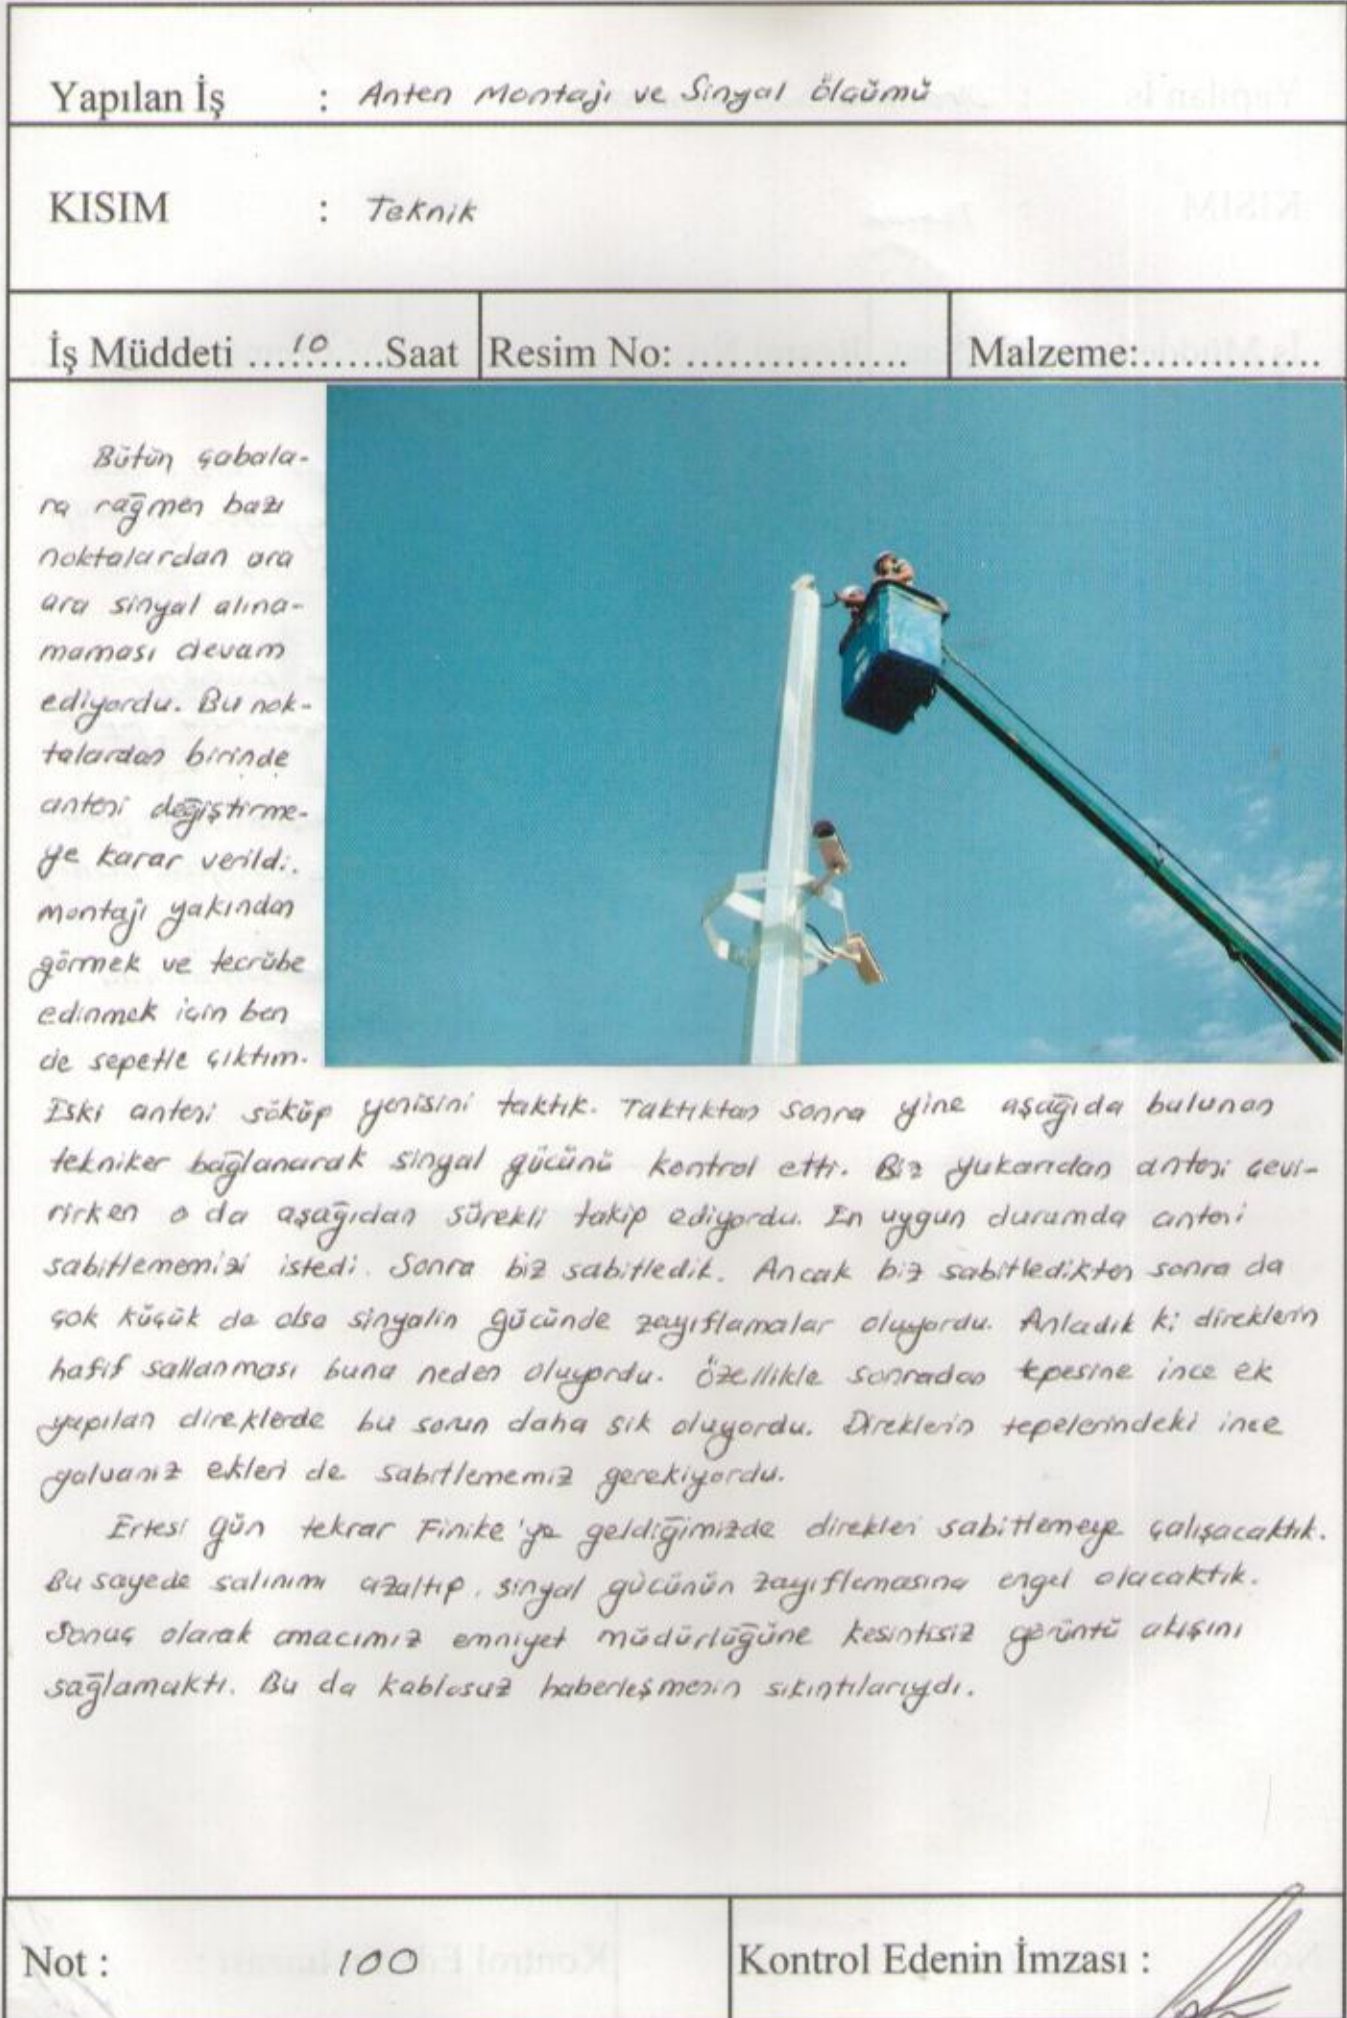 Yapılan İş : Anten Montajı ve Sinyal Ölçümü
KISIM : Teknik
İş Müddeti ...10.....Saat
Resim No: ................
Malzeme:.............
Bütün çabala-
ra rağmen bazı
noktalardan ara
ara sinyal alına-
maması devam
ediyordu. Bu nok-
talardan birinde
anteni değiştirme-
ye karar verildi.
montajı yakından
görmek ve tecrübe
edinmek için ben
de sepetle çıktım.
Eski anteni söküp yenisini taktık. Taktıktan sonra yine aşağıda bulunan
tekniker bağlanarak sinyal gücünü kontrol etti. Biz yukarıdan anteni çevi-
rirken o da aşağıdan sürekli takip ediyordu. En uygun durumda anteni
sabitlememizi istedi. Sonra biz sabitledik. Ancak biz sabitledikten sonra da
çok küçük da olsa sinyalin gücünde zayıflamalar oluyordu. Anladık ki direklerin
hafif sallanması buna neden oluyordu. Özellikle sonradan tepesine ince ek
yapılan direklerde bu sorun daha sık oluyordu. Direklerin tepelerindeki ince
galvaniz ekleri de sabitlememiz gerekiyordu.
Ertesi gün tekrar Finike'ye geldiğimizde direkleri sabitlemeye çalışacaktık.
Bu sayede salınımı azaltıp, sinyal gücünün zayıflamasına engel olacaktık.
Sonuç olarak amacımız emniyet müdürlüğüne kesintisiz görüntü akışını
sağlamaktı. Bu da kablosuz haberleşmenin sıkıntılarıydı.
Not : 100
Kontrol Edenin İmzası :